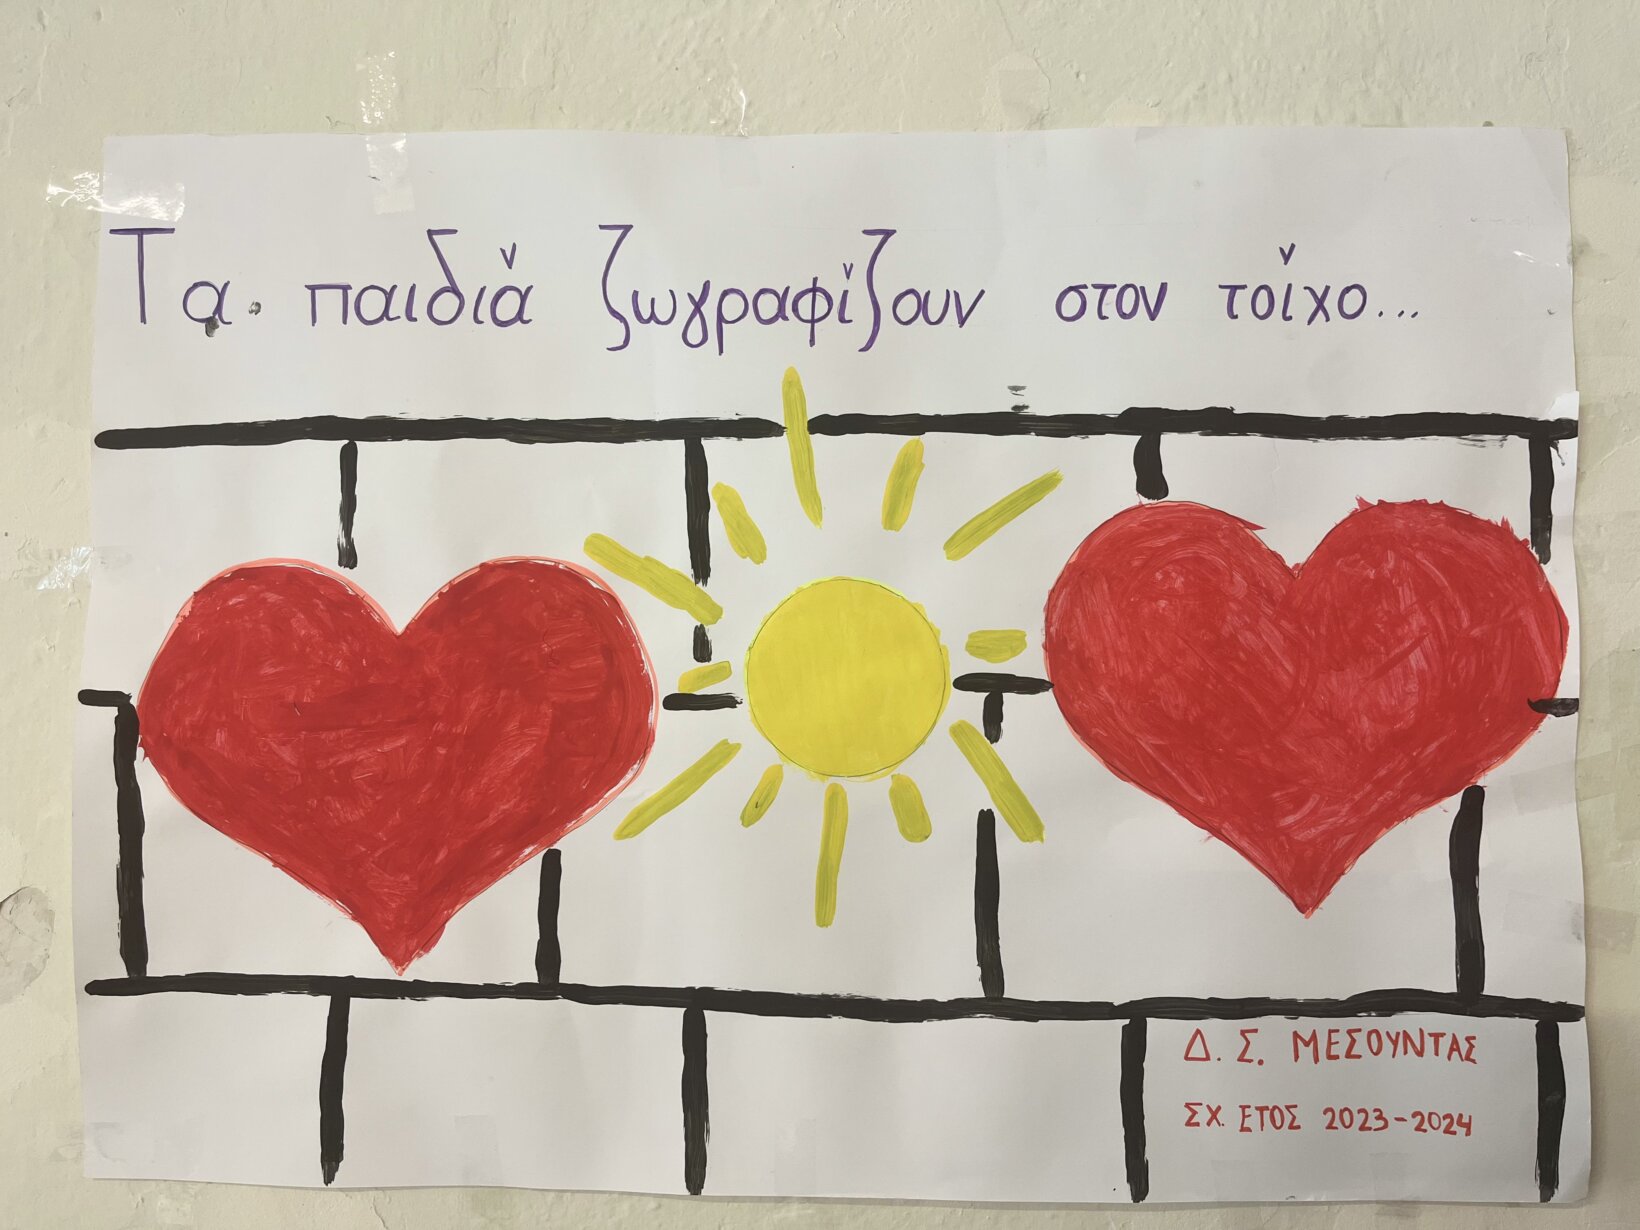 Τα παιδιά ζωγραφίζουν στον τοίχο...
Δ. Σ. ΜΕΣΟΥΝΤΑΣ
ΣΧ. ΕΤΟΣ 2023-2024